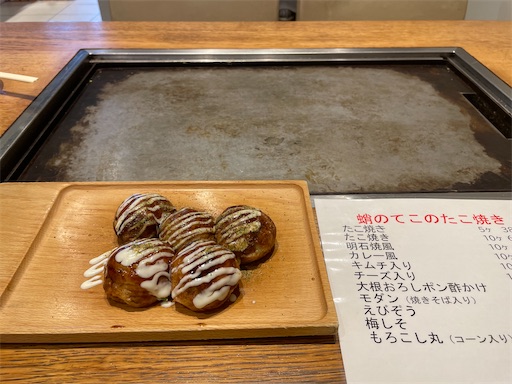 蛸のてこのたこ焼き
たこ焼き 5ヶ 38
たこ焼き 10ヶ 6
明石焼風 10ヶ
カレー風 10ヶ
キムチ入り 10
チーズ入り 1
大根おろしポン酢かけ
モダン（焼きそば入り）
えびぞう
梅しそ
もろこし丸（コーン入り）